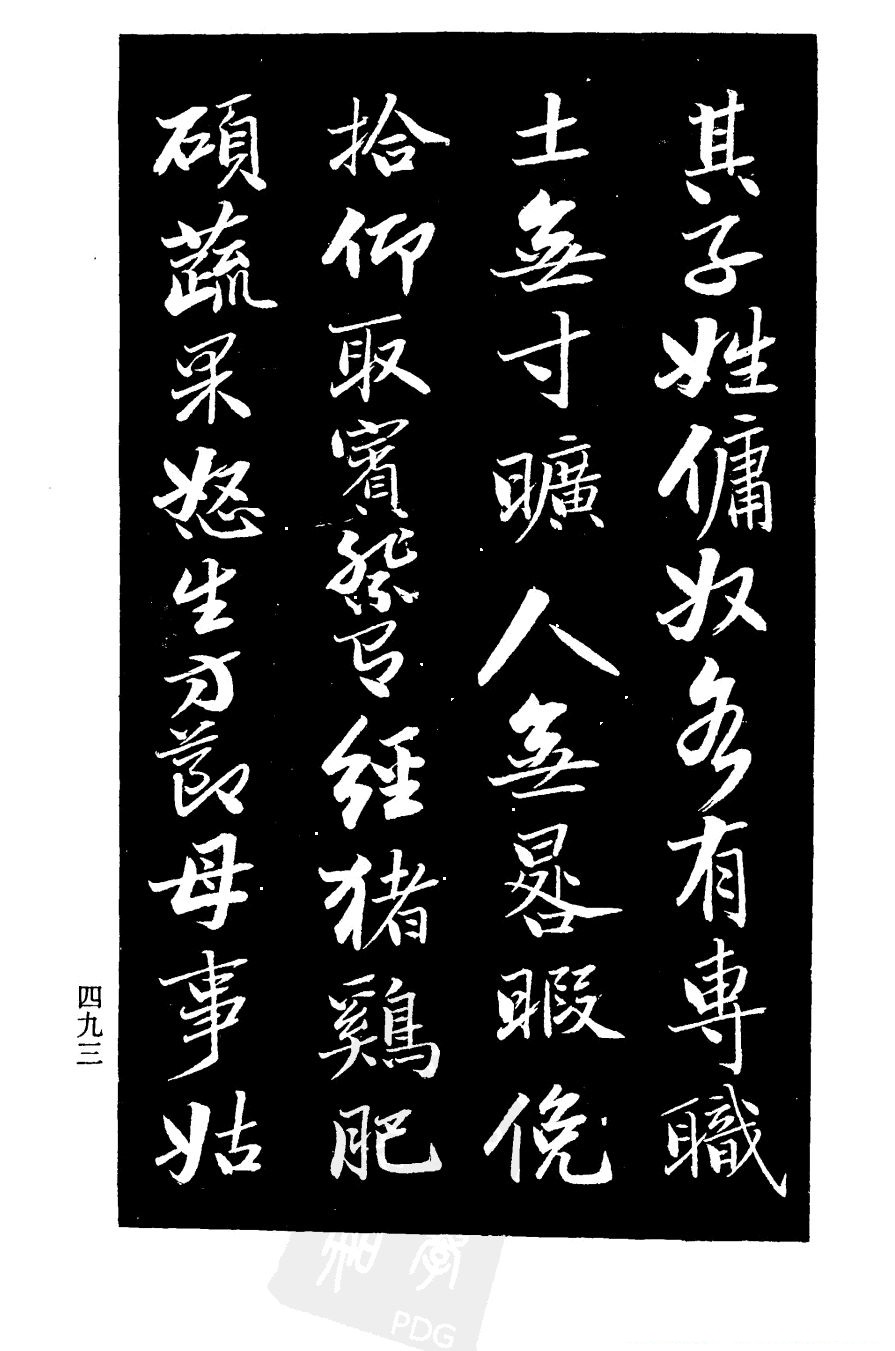 其子姓傭奴各有專職
土無寸曠人無晷暇俛
拾仰取賓祭有經猪鷄肥
碩蔬果怒生方節母事姑
四九三
PDG